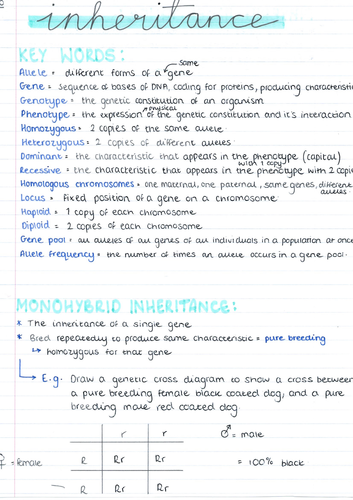 inheritance
KEY WORDS:
Allele = different forms of a same gene
Gene = sequence of bases of DNA, coding for proteins, producing characteristic
Genotype = the genetic constitution of an organism
Phenotype = the physical expression of the genetic constitution and it's interaction
Homozygous = 2 copies of the same allele
Heterozygous = 2 copies of different alleles
Dominant = the characteristic that appears in the phenotype (capital) with 1 copy
Recessive = the characteristic that appears in the phenotype with 2 copi
Homologous chromosomes = one maternal, one paternal, same genes, different alleles
Locus = fixed position of a gene on a chromosome
Haploid = 1 copy of each chromosome
Diploid = 2 copies of each chromosome
Gene pool = all alleles of all genes of all individuals in a population at once
Allele frequency = the number of times an allele occurs in a gene pool
MONOHYBRID INHERITANCE:
* The inheritance of a single gene
* Bred repeatedly to produce same characteristic = pure breeding
↳ homozygous for that gene
↳ E.g. Draw a genetic cross diagram to show a cross between
a pure breeding female black coated dog, and a pure
breeding male red coated dog.
r r ♂ = male
♀ = female R Rr Rr = 100% black
R Rr Rr